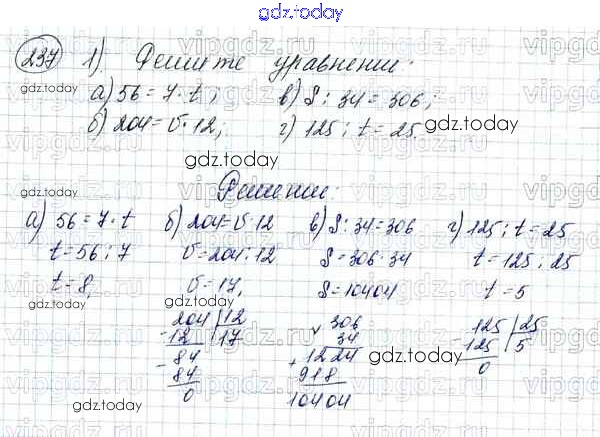 gdz.today
237 1). Решите уравнении:
а) 56 = 7 · t; в) S : 34 = 306;
б) 204 = v · 12; г) 125 : t = 25.
gdz.today
Решении:
а) 56 = 7 · t б) 204 = v · 12 в) S : 34 = 306 г) 125 : t = 25
t = 56 : 7 v = 204 : 12 S = 306 · 34 t = 125 : 25
t = 8, v = 17, S = 10404 t = 5
204 12 306 125 25
- 12 17 34 - 125 5
- 84 1224 0
84 + 918
0 10404
gdz.today
gdz.today
gdz.today
gdz.today
gdz.today